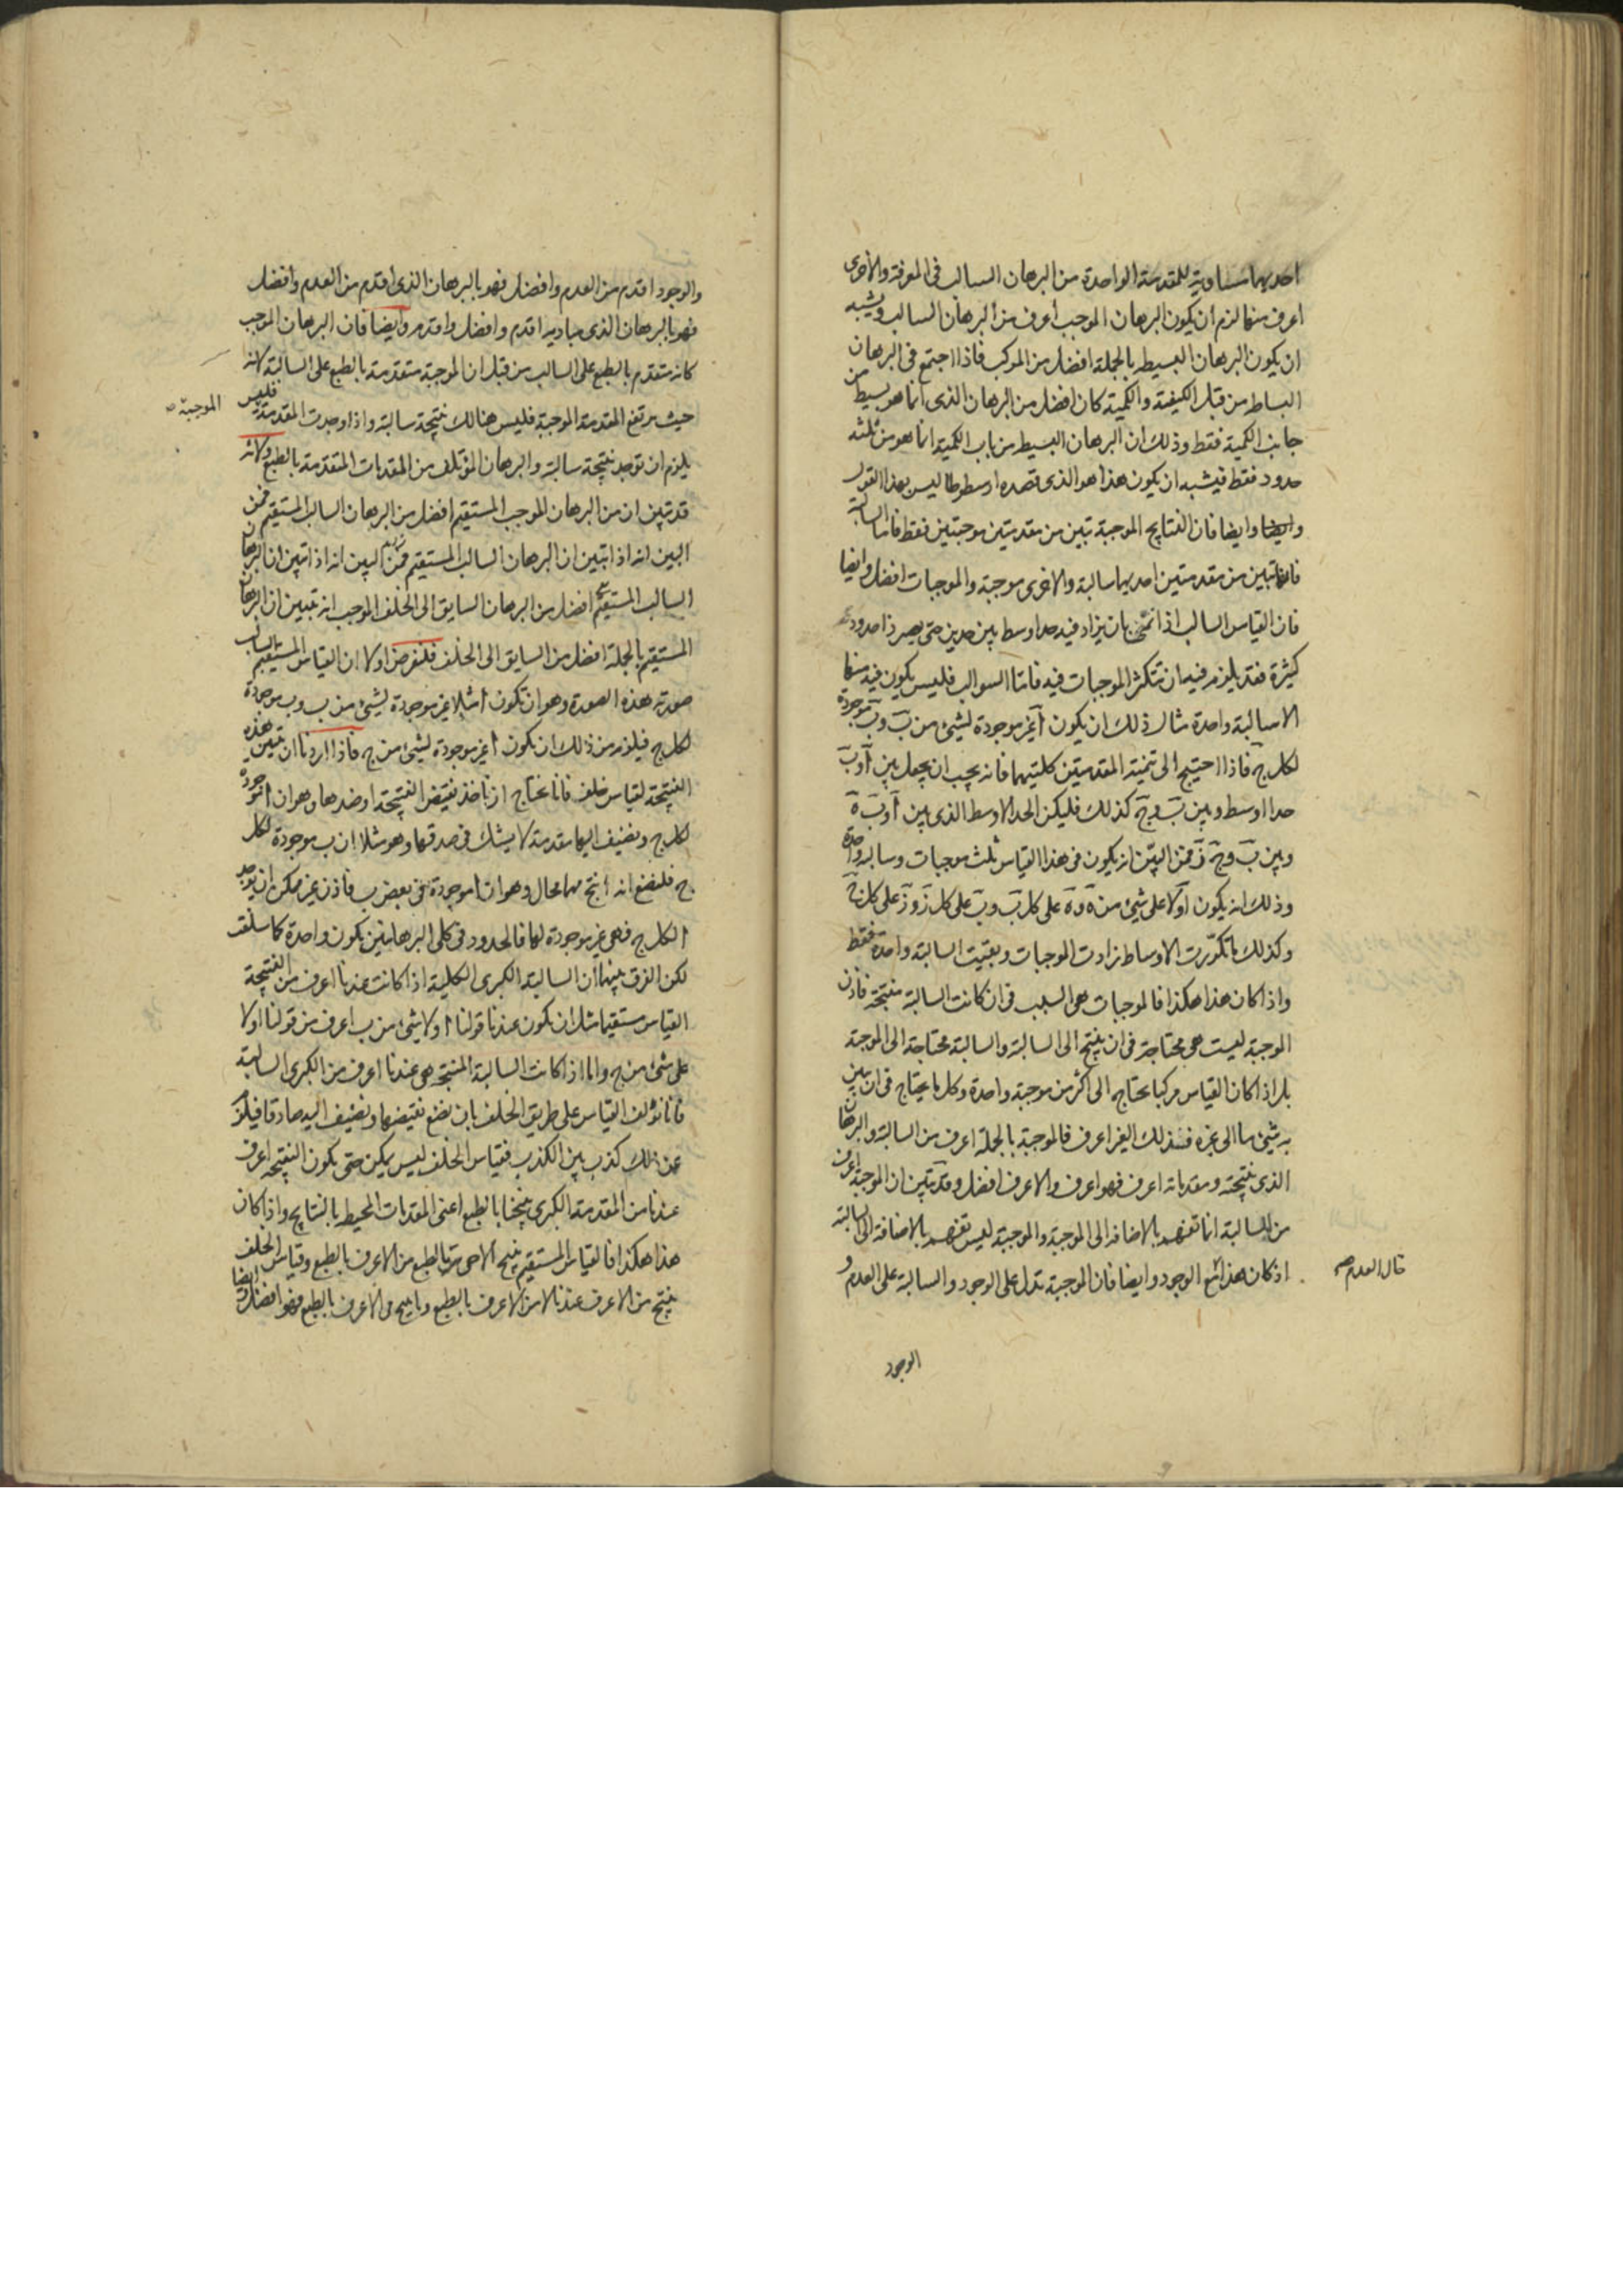 احديهما مساوية للمقدمة الواحدة من البرهان السالب فى المعرفة والاخرى
اعرف منها لزم ان يكون البرهان الموجب اعرف من البرهان السالب ويشبه
ان يكون البرهان البسيط بالجملة افضل من المركب فاذا اجتمع فى البرهان
البساطه من قبل الكيفية والكمية كان افضل من البرهان الذى انما هو بسيط من
جانب الكمية فقط وذلك ان البرهان البسيط من باب الكمية انما هو من ثلثه
حدود فقط فيشبه ان يكون هذا هو الذى قصده ارسطوطاليس بهذا القول
وايضا وايضا فان النتايج الموجبة تبين من مقدمتين موجبتين فقط فاما السالبة
فانها تبين من مقدمتين احديهما سالبة والاخرى موجبة والموجبات افضل وايضا
فان القياس السالب اذا انمى بان يزاد فيه حدا وسط بين حدين حتى يصير ذا حدود
كثيرة فقد يلزم فيه ان تتكثر الموجبات فيه فاما السوالب فليس يكون فيه منها
الا سالبة واحدة مثال ذلك ان يكون آ غير موجودة لشئ من بَ وبَ موجودة
لكل جَ فاذا احتيج الى تنمية المقدمتين كلتيهما فانه يجب ان يجعل بين آ وبَ
حدا اوسط وبين بَ وجَ كذلك فليكن الحد الاوسط الذى بين آ وبَ هَ
وبين بَ وجَ زَ فمن البيّن ان يكون فى هذا القياس ثلث موجبات وسالبه واحدة
وذلك انه يكون آ ولا على شئ من هَ وهَ على كل بَ وبَ على كل زَ وزَ على كل جَ
وكذلك ما تكرّرت الاوساط زادت الموجبات وبقيت السالبة واحدة فقط
واذا كان هذا هكذا فالموجبات هى السبب فى ان كانت السالبة منتجة فاذن
الموجبة ليست هى محتاجة فى ان ينتج الى السالبة والسالبة محتاجة الى الموجبة
بل اذا كان القياس مركبا يحتاج الى اكثر من موجبة واحدة وكل ما يحتاج فى ان يبين
به شئ ما الى غيره فذلك الغير اعرف فالموجبة بالجملة اعرف من السالبة والبرهان
الذى نتيجته ومقدماته اعرف فهو اعرف والاعرف افضل وقد تبين ان الموجبة اعرف
من السالبة انما تفهم بالاضافه الى الموجبة والموجبة ليس تفهم بالاضافة الى السالبة
اذ كان هذا الوجود وايضا فان الموجبة تدل على الوجود والسالبة على العدم و
حال العدم صح
الوجود
والوجود اقدم من العدم وافضل فهو بالبرهان الذى اقدم من العدم وافضل
فهو بالبرهان الذى مباديه اقدم وافضل واقدم وايضا فان البرهان الموجب
كانه متقدم بالطبع على السالب من قبل ان الموجبة متقدمة بالطبع على السالبة لانه
حيث يرتفع المقدمة الموجبة فليس هنالك نتيجة سالبة واذا وجدت المقدمة فليس
الموجبة ص
يلزم ان توجد نتيجة سالبة والبرهان المؤتلف من المقدمات المتقدمة بالطبع ولانه
قد تبين ان من البرهان الموجب المستقيم افضل من البرهان السالب المستقيم فمن
البين انه اذا تبين ان البرهان السالب المستقيم فمن البين انه اذا تبين ان البرهان
السالب المستقيم افضل من البرهان السايق الى الخلف الموجب انه تبين ان البرهان
المستقيم بالجملة افضل من السايق الى الخلف فلنفرض اولا ان القياس المستقيم السالب
صورته هذه الصورة وهو ان تكون ا مثلا غير موجودة لشئ من ب وب موجودة
لكل ج فيلزم من ذلك ان يكون ا غير موجودة لشئ من ج فاذا اردنا ان تبين هذه
النتيجة لقياس خلف فانا نحتاج ان ناخذ نقيض النتيجة او ضدها وهو ان ا موجودة
لكل ج ونضيف اليها مقدمة لا يشك فى صدقها وهو مثلا ان ب موجودة لكل
ج فلنضع انه انتج منهما محال وهو ان ا موجودة فى بعض ب فاذن غير ممكن ان يوجد
ا لكل ج فهى غير موجودة لها فالحدود فى كلى البرهانين يكون واحدة كما سلف
لكن الفرق بينهما ان السالبة الكبرى الكلية اذا كانت عندنا اعرف من النتيجة
القياس مستقيما مثل ان يكون عندنا قولنا ا ولا شئ من ب اعرف من قولنا ا ولا
على شئ من ج واما اذا كانت السالبة المنتجة هى عندنا اعرف من الكبرى السالبة
فانا نؤلف القياس على طريق الخلف بان نضع نقيضها ونضيف اليه صادقا فيلزم
عن ذلك كذب بين الكذب فقياس الخلف ليس يكون حتى يكون النتيجة اعرف
عندنا من المقدمة الكبرى بالطبع اعنى المقدمات المحيطه بالنتايج واذا كان
هذا هكذا فالقياس المستقيم ينتج بالطبع من الاعرف بالطبع وقياس الخلف
ينتج من الاعرف عندنا لا من الاعرف بالطبع وما ينتج من الاعرف بالطبع فهو افضل وايضا